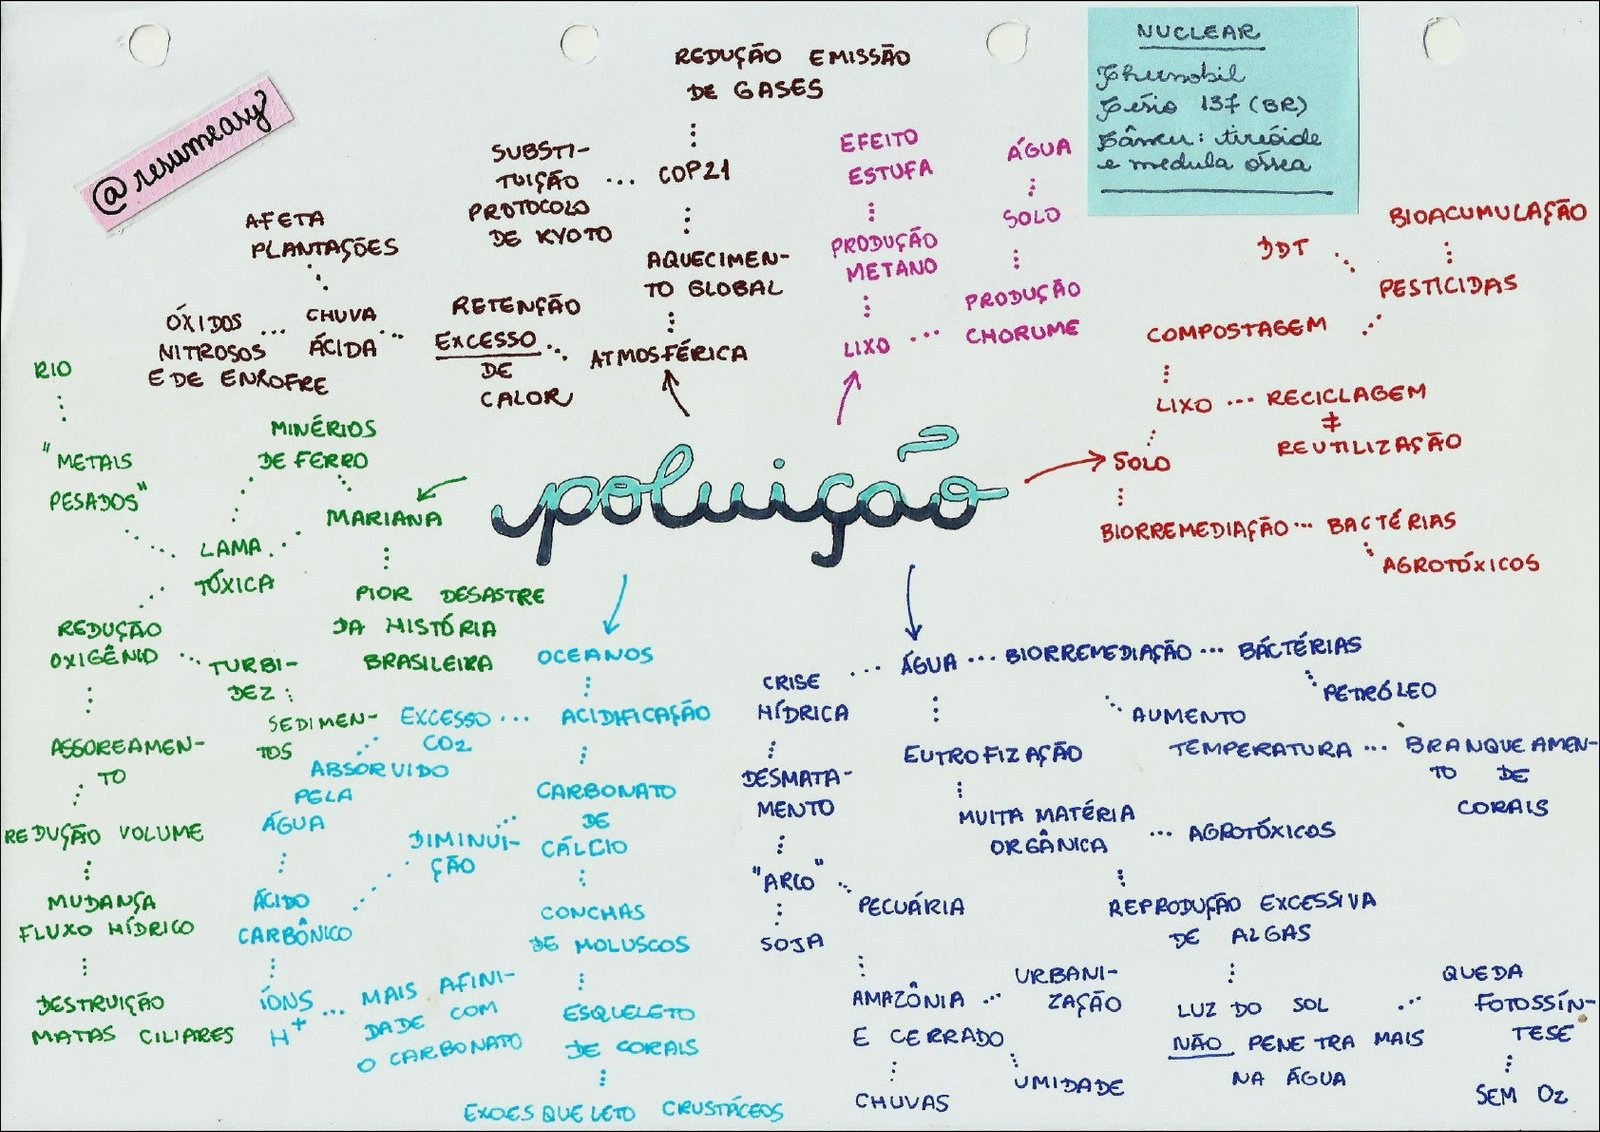 @resumeasy
NUCLEAR
Chernobil
Césio 137 (BR)
Câncer: tireóide
e medula óssea
REDUÇÃO EMISSÃO
DE GASES
SUBSTI-
TUIÇÃO ... COP21
PROTOCOLO
DE KYOTO
AQUECIMEN-
TO GLOBAL
ATMOSFÉRICA
RETENÇÃO
EXCESSO
DE
CALOR
CHUVA
ÁCIDA
AFETA
PLANTAÇÕES
ÓXIDOS
NITROSOS
E DE ENXOFRE
EFEITO
ESTUFA
PRODUÇÃO
METANO
LIXO
ÁGUA
SOLO
PRODUÇÃO
CHORUME
BIOACUMULAÇÃO
DDT
PESTICIDAS
COMPOSTAGEM
LIXO ... RECICLAGEM
≠
REUTILIZAÇÃO
SOLO
BIORREMEDIAÇÃO ... BACTÉRIAS
AGROTÓXICOS
poluição
RIO
"METAIS
PESADOS"
MINÉRIOS
DE FERRO
MARIANA
LAMA
TÓXICA
PIOR DESASTRE
DA HISTÓRIA
BRASILEIRA
REDUÇÃO
OXIGÊNIO
TURBI-
DEZ
SEDIMEN-
TOS
ASSOREAMEN-
TO
REDUÇÃO VOLUME
MUDANÇA
FLUXO HÍDRICO
DESTRUIÇÃO
MATAS CILIARES
OCEANOS
EXCESSO ... ACIDIFICAÇÃO
CO2
ABSORVIDO
PELA
ÁGUA
CARBONATO
DE
CÁLCIO
DIMINUI-
ÇÃO
ÁCIDO
CARBÔNICO
CONCHAS
DE MOLUSCOS
ÍONS
H+
MAIS AFINI-
DADE COM
O CARBONATO
ESQUELETO
DE CORAIS
EXOESQUELETO CRUSTÁCEOS
ÁGUA ... BIORREMEDIAÇÃO ... BÁCTÉRIAS
PETRÓLEO
CRISE
HÍDRICA
AUMENTO
TEMPERATURA ... BRANQUEAMEN-
TO DE
CORAIS
EUTROFIZAÇÃO
DESMATA-
MENTO
MUITA MATÉRIA
ORGÂNICA ... AGROTÓXICOS
"ARCO"
PECUÁRIA
SOJA
REPRODUÇÃO EXCESSIVA
DE ALGAS
AMAZÔNIA
E CERRADO
URBANI-
ZAÇÃO
UMIDADE
CHUVAS
LUZ DO SOL
NÃO PENETRA MAIS
NA ÁGUA
QUEDA
FOTOSSÍN-
TESE
SEM O2